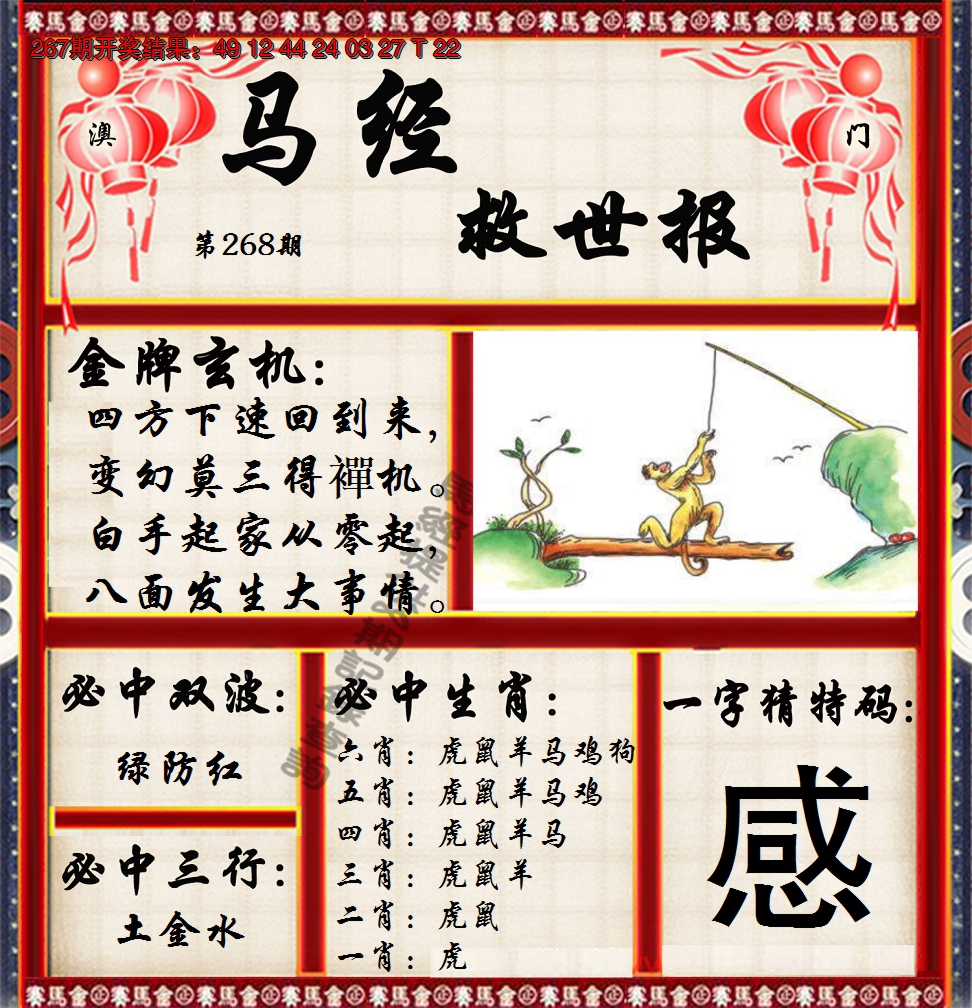 267期开奖结果：49 12 44 24 03 27 T 22
澳
门
马经
救世报
第268期
金牌玄机：
四方下速回到来，
变幻莫三得禪机。
白手起家从零起，
八面发生大事情。
必中双波：
绿防红
必中三行：
土金水
必中生肖：
六肖：虎鼠羊马鸡狗
五肖：虎鼠羊马鸡
四肖：虎鼠羊马
三肖：虎鼠羊
二肖：虎鼠
一肖：虎
一字猜特码：
感